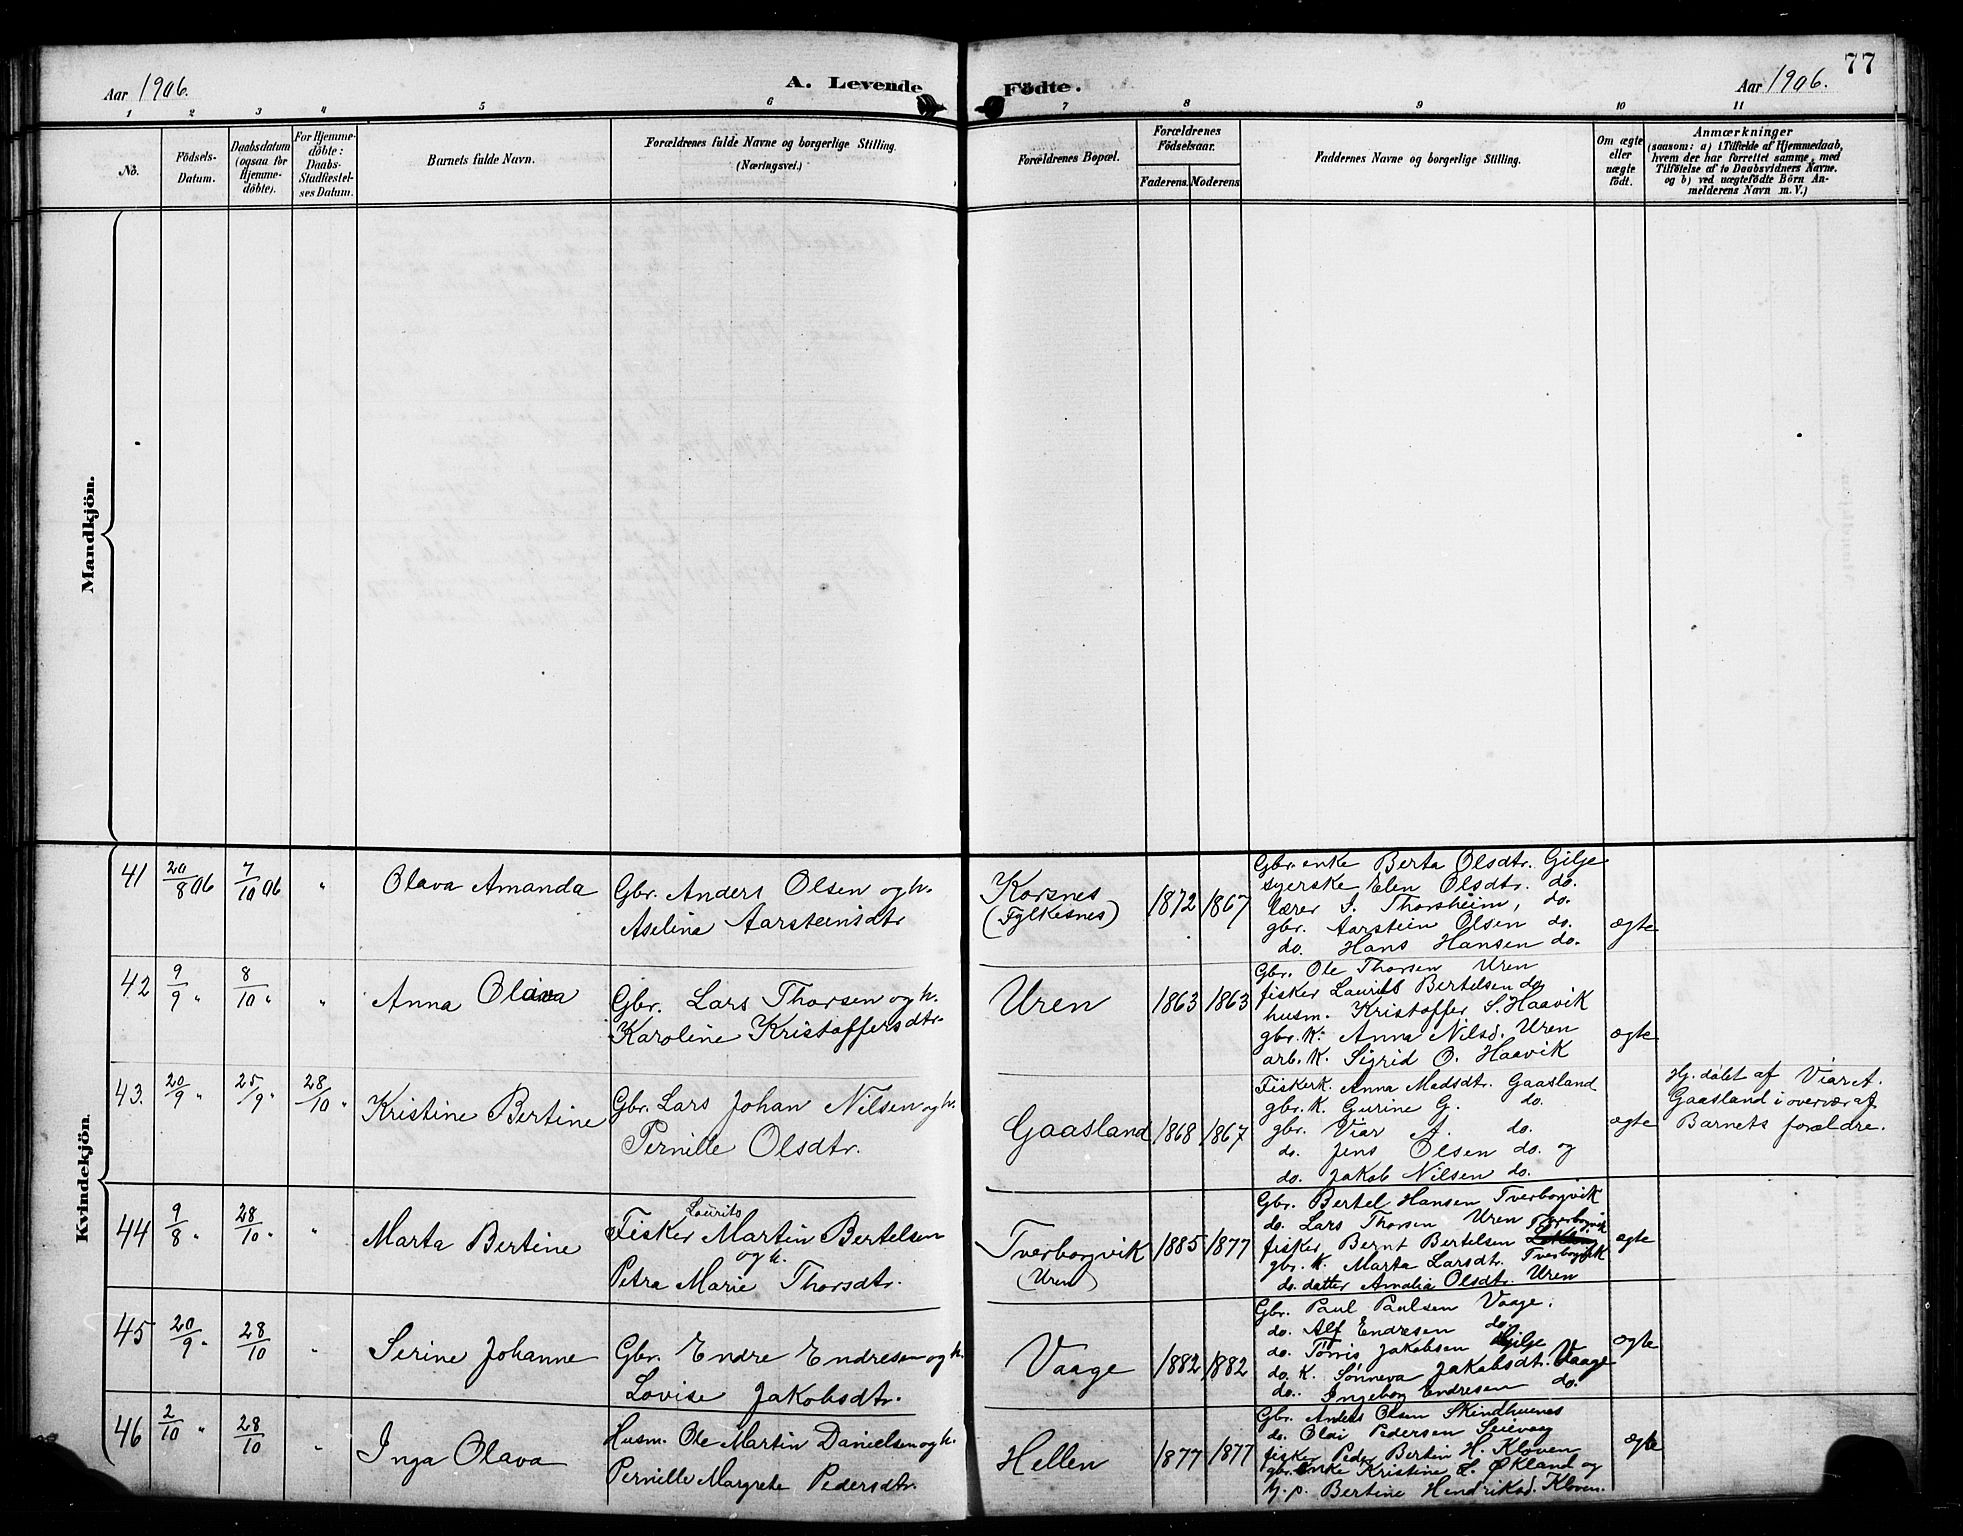 77
Aar 1906. A. Levende Födte. Aar 1906.
1 2 3 4 5 6 7 8 9 10 11
No.
Födsels-
Datum.
Daabsdatum
(ogsaa for
Hjemme-
döbte).
For Hjemme-
döbte:
Daabs-
Stadfæstel-
ses Datum.
Barnets fulde Navn.
Forældrenes fulde Navne og borgerlige Stilling.
(Næringsvei.)
Forældrenes Bopæl.
Forældrenes
Födselsaar.
Faderens. Moderens.
Faddernes Navne og borgerlige Stilling.
Om ægte
eller
uægte
født.
Anmærkninger
(saasom: a) i Tilfælde af Hjemmedaab,
hvem der har forrettet samme, med
Tilföielse af to Daabsvidners Navne.
og b) ved uægtefödte Börn An-
melderens Navn m. V.)
Mandkjön.
Kvindekjön
41 20/8 06 7/10 06 " Olava Amanda
Gbr. Anders Olsen og h.
Aselina Aarsteinsdtr
Korsnes
(Fylkesnes)
1872 1867
Gbr. enke Berta Olsdtr. Gilje
syerske Elen Olsdtr. do.
lærer S. Thorsheim, do.
gbr. Aarstein Olsen do.
do. Hans Hansen do.
ægte
42 9/9 " 8/10 " " Anna Olava
Gbr. Lars Thorsen og h.
Karoline Kristoffersdtr.
Uren
1863 1863
Gbr. Ole Thorsen Uren
fisker Laurits Bertelsen do
husm. Kristoffer S. Haavik
gbr. k. Anna Nilsd. Uren
arb. k. Sigrid O. Haavik
ægte
43. 20/9 " 25/9 " 28/10 " Kristine Bertine
Gbr. Lars Johan Nilsen og h.
Pernille Olsdtr.
Gaasland
1868 1867
Fiskerk. Anna Madsdtr. Gaasland
gbr. k. Gurine G. do.
gbr. Viar A. do.
do. Jens Olsen do. og
do. Jakob Nilsen do.
ægte
Hj. døbt af Viar A.
Gaasland i overvær af
Barnets forældre.
44 9/8 " 28/10 " " Marta Bertine
Laurits
Fisker Martin Bertelsen
og h.
Petra Marie Thorsdtr.
Tverborgvik
(Uren)
1885 1877
Gbr. Bertel Hansen Tverborgvik
do. Lars Thorsen Uren
fisker Bernt Bertelsen Tverborgvik
gbr. k. Marta Larsdtr. Tverborgvik
do. datter Amalia Olsdtr. Uren
ægte
45 20/9 " 28/10 " Serine Johanne
Gbr. Endre Endresen og h.
Lovise Jakobsdtr.
Vaage
1882 1882
Gbr. Paul Paulsen Vaage.
do. Alf Endresen do.
do. Tørris Jakobsen Gilje
do. k. Sønneva Jakobsdt. Vaage
do. Ingeborg Endresen do.
ægte
46 2/10 " 28/10 " Inga Olava
Husm. Ole Martin Danielsen og h.
Pernille Margrete Pedersdtr.
Hellen
1877 1877
Gbr. Anders Olsen Skindhuenes
do. Olai Pedersen Seievaag
fisker Peder Bertin H. Kloven
gbr. enke Kristine L. Økland og
tj. p. Bertine Hendriksd. Kloven.
ægte